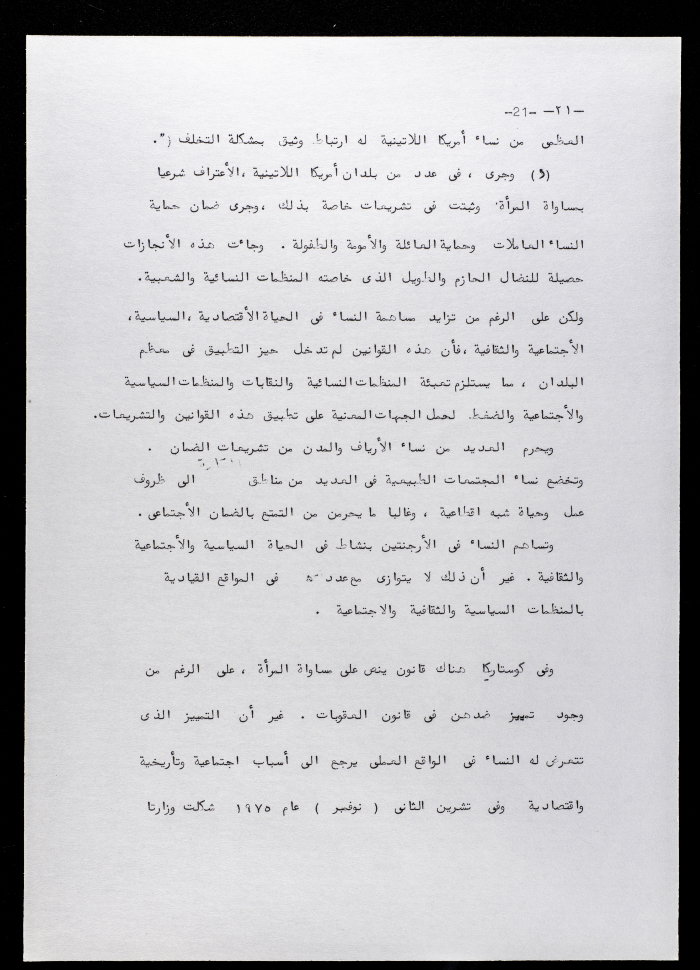 -٢١- -21-
العظمى من نساء أمريكا اللاتينية له ارتباط وثيق بمشكلة التخلف".
(و) وجرى ، فى عدد من بلدان أمريكا اللاتينية ،الأعتراف شرعيا
بمساواة المرأة وثبتت فى تشريعات خاصة بذلك ،وجرى ضمان حماية
النساء العاملات وحماية العائلة والأمومة والطفولة . وجاءت هذه الأنجازات
حصيلة للنضال الحازم والطويل الذى خاضته المنظمات النسائية والشعبية.
ولكن على الرغم من تزايد مساهمة النساء فى الحياة الأقتصادية ،السياسية،
الأجتماعية والثقافية ،فأن هذه القوانين لم تدخل حيز التطبيق فى معظم
البلدان ، مما يستلزم تعبئة المنظمات النسائية والنقابات والمنظمات السياسية
والأجتماعية والضغط لحمل الجهات المعنية على تطبيق هذه القوانين والتشريعات.
ويحرم العديد من نساء الأرياف والمدن من تشريعات الضمان .
وتخضع نساء المجتمعات الطبيعية فى العديد من مناطق الى ظروف
عمل وحياة شبه اقطاعية ، وغالبا ما يحرمن من التمتع بالضمان الأجتماعى.
وتساهم النساء فى الأرجنتين بنشاط فى الحياة السياسية والأجتماعية
والثقافية . غير أن ذلك لا يتوازى مع فى المواقع القيادية
بالمنظمات السياسية والثقافية والاجتماعية .
وفى كوستاريكا هناك قانون ينص على مساواة المرأة ، على الرغم من
وجود تمييز ضدهن فى قانون العقوبات . غير أن التمييز الذى
تتعرض له النساء فى الواقع العملى يرجع الى أسباب اجتماعية وتأريخية
واقتصادية وفى تشرين الثانى ( نوفمبر ) عام ١٩٧٥ شكلت وزارتا